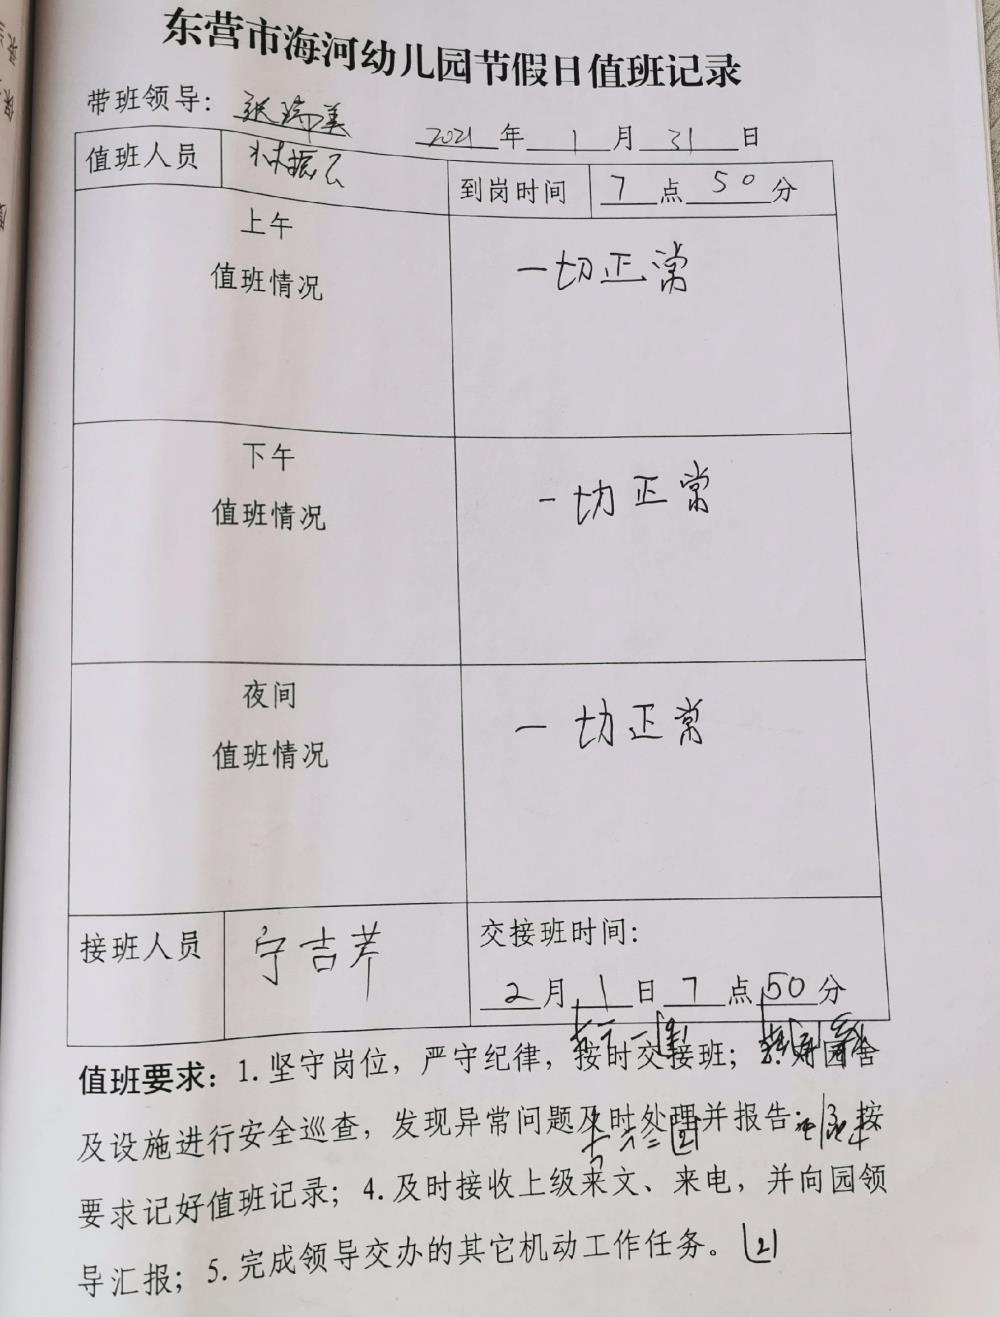 东营市海河幼儿园节假日值班记录
带班领导：张瑞美
2021年1月31日
值班人员 林振云 到岗时间 7点50分
上午
值班情况
一切正常
下午
值班情况
一切正常
夜间
值班情况
一切正常
接班人员 宁吉芹 交接班时间：
2月1日7点50分
值班要求：1.坚守岗位，严守纪律，按时交接班；对园舍
及设施进行安全巡查，发现异常问题及时处理并报告；按
要求记好值班记录；4.及时接收上级来文、来电，并向园领
导汇报；5.完成领导交办的其它机动工作任务。